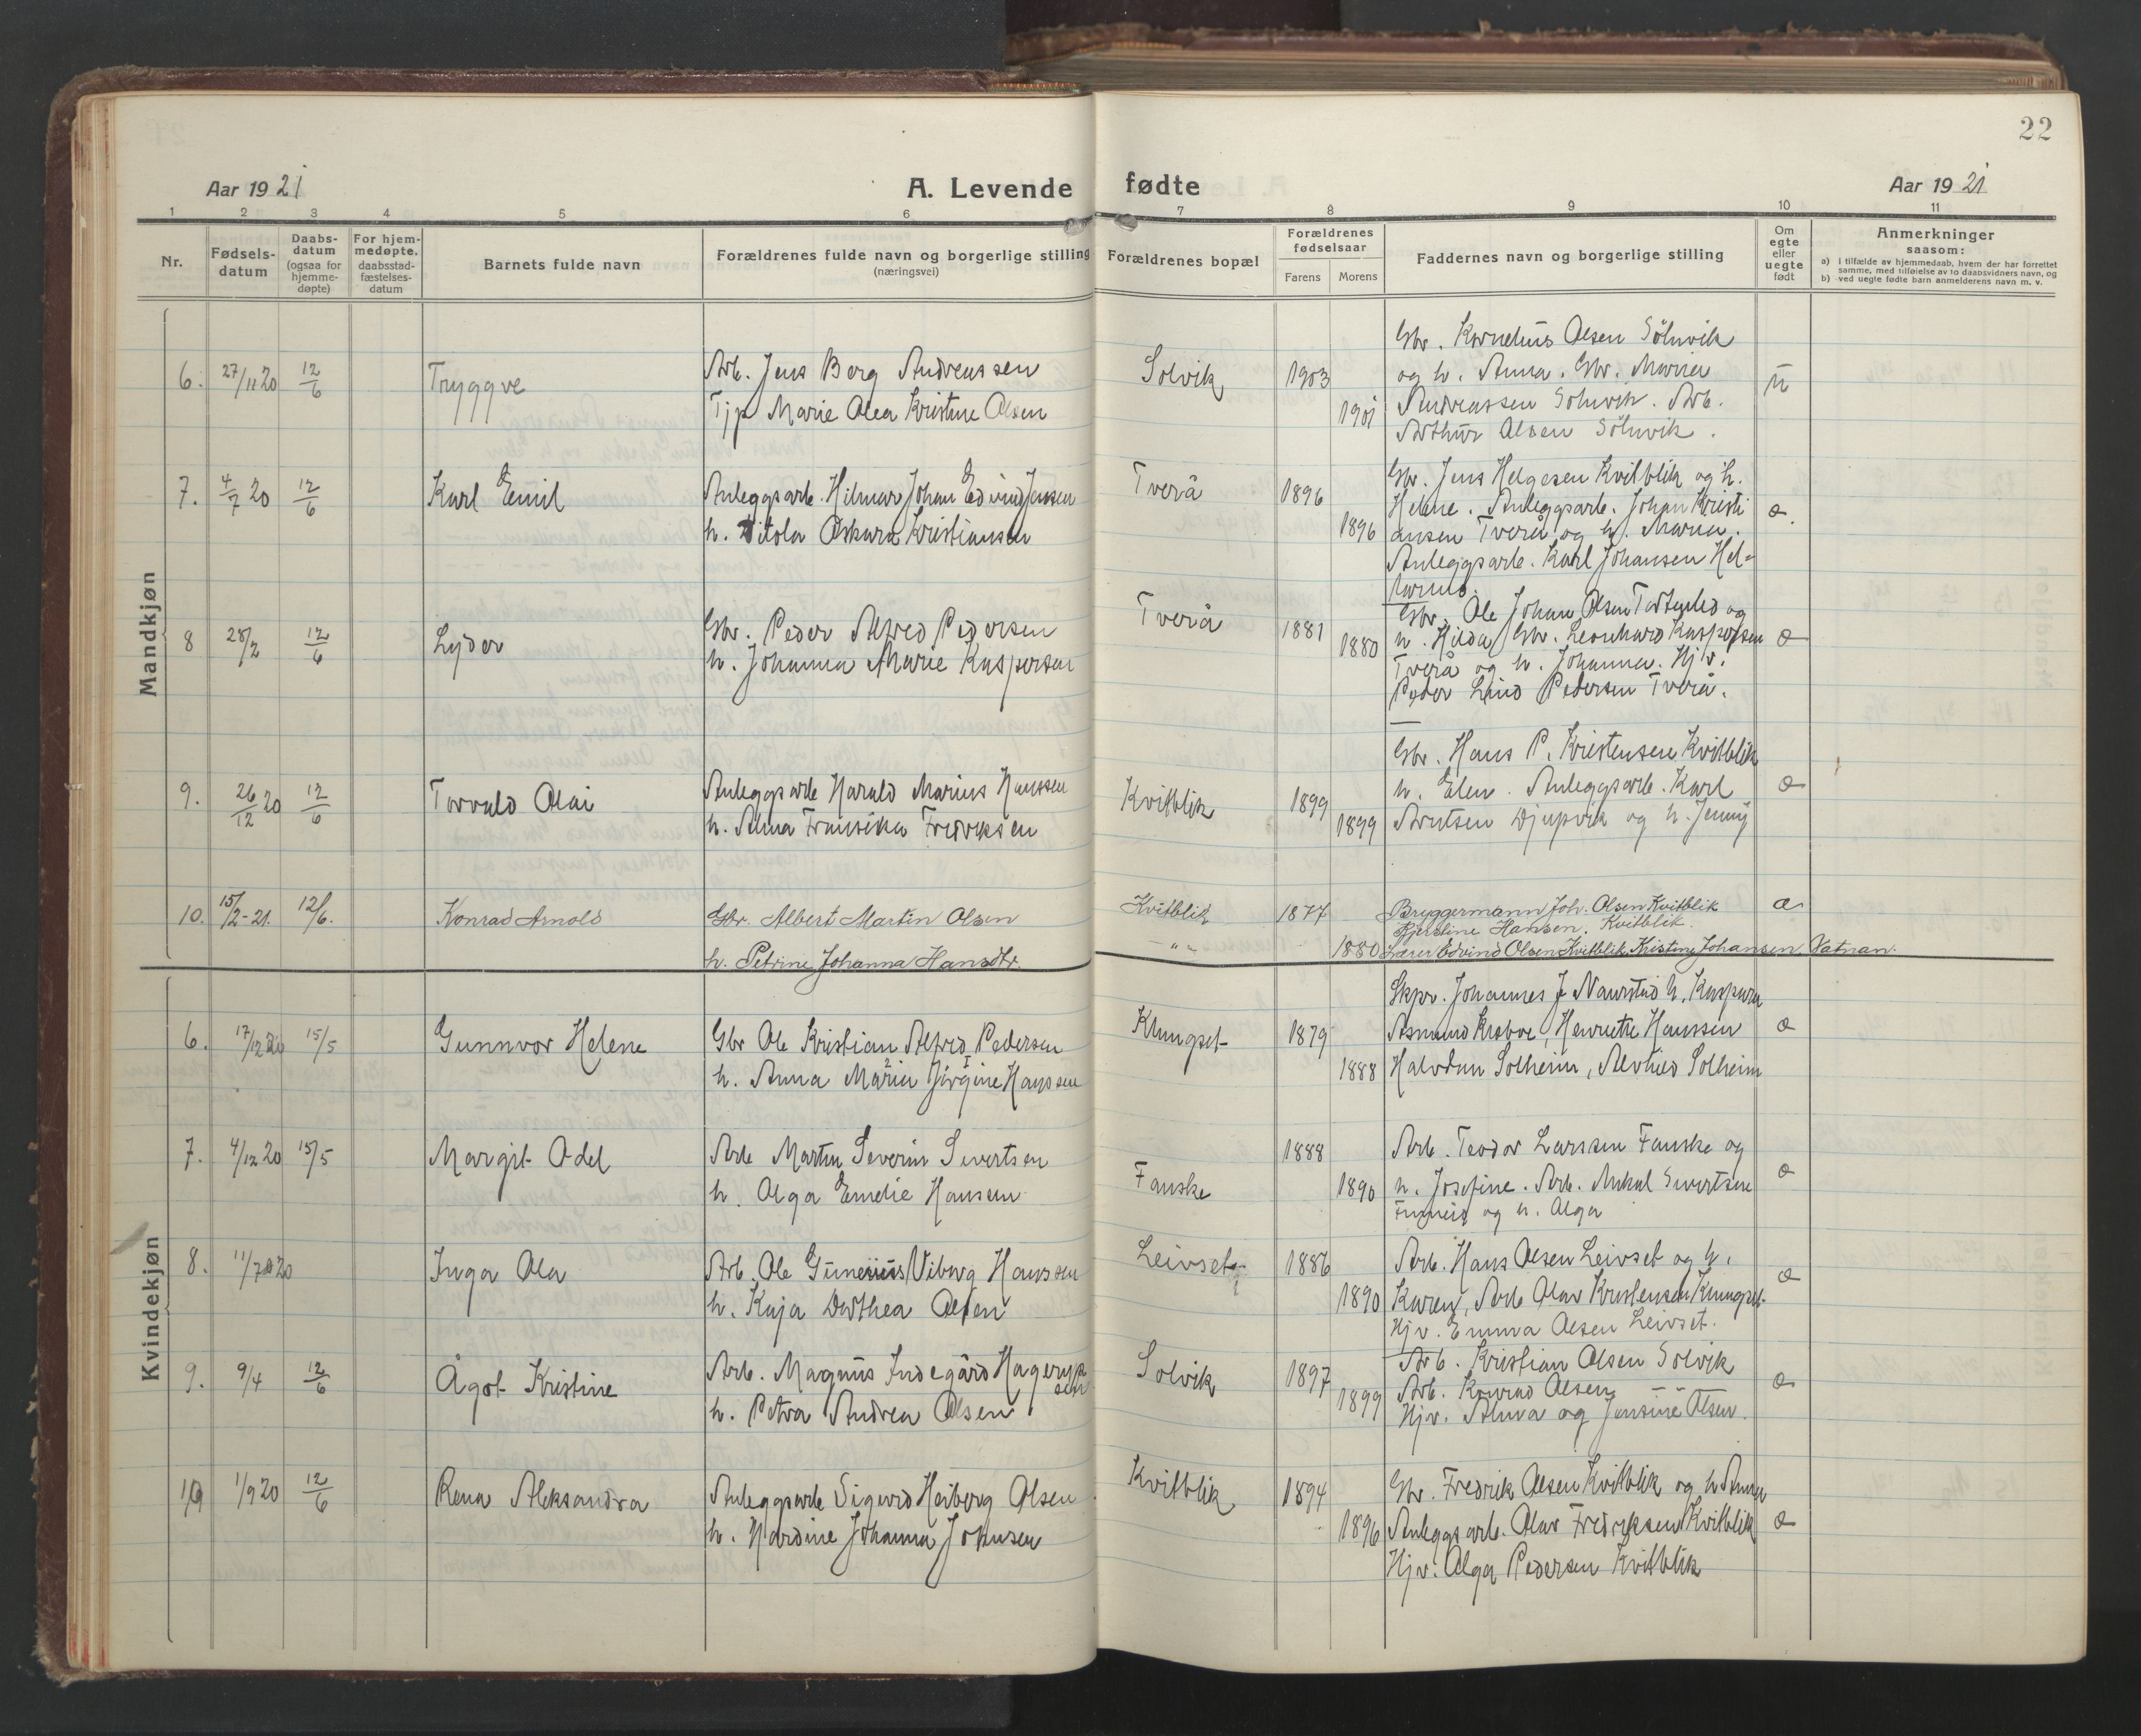 22
Aar 1921
A. Levende fødte
Aar 1921
1 2 3 4 5 6 7 8 9 10 11
Nr.
Fødsels-
datum
Daabs-
datum
(ogsaa for
hjemme-
døpte)
For hjem-
medøpte.
daabsstad-
fæstelses-
datum
Barnets fulde navn
Forældrenes fulde navn og borgerlige stilling
(næringsvei)
Forældrenes bopæl
Forældrenes
fødselsaar
Farens Morens
Faddernes navn og borgerlige stilling
Om
egte
eller
uegte
født
Anmerkninger
saasom:
a) i tilfælde av hjemmedaab, hvem der har forrettet
samme, med tilføielse av to daabsvidners navn, og
b) ved uegte fødte barn anmelderens navn m. v.
Mandkjøn
6. 27/11 20 12/6 Tryggve
Arb. Jens Berg Andreassen
Tjp Marie Olea Kristine Olsen
Solvik 1903
1901
Gbr. Kornelius Olsen Sölnvik
og h. Anna. Gbr. Maria
Andreassen Sölnvik. Arb.
Arthur Olsen Sölnvik.
u
7. 4/7 20 12/6 Karl Emil
Anleggsarb. Hilmar Johan Edvind Jensen
h. Oskara Kristiansen
Tverå 1896
1896
Gbr. Jens Helgesen Kvitblik og h.
Helene. Anleggsarb. Johan Kristi
ansen Tverå og h. Maria.
Anleggsarb. Karl Johansen Hel-
æ.
8 28/2 12/6 Lyder
Gbr. Peder Alfred Pedersen
h. Johanna Marie Kaspersen
Tverå 1881
1880
Gbr. Ole Johan Olsen og
h. Hilda, Gbr. Leonhard Kaspersen
Tverå og h. Johanna. Hjv.
Peder Lind Pedersen Tverå.
æ
9. 26/12 20 12/6 Torvald Olai
Anleggsarb Harald Marius Hanssen
h. Alma Fransika Fredriksen
Kvitblik 1899
1899
Gbr. Hans P. Kristensen Kvitblik
h. Elen. Anleggsarb. Karl
Arntsen Djupvik og h. Jenny
æ
10. 15/2-21. 12/6. Konrad Arnold
Gbr. Albert Martin Olsen
h. Petrine Johanna Hansdtr.
Kvitblik 1877
-"- 1880
Bryggermann Joh. Olsen Kvitblik
Kjerstine Hansen. Kvitblik.
Lærer Edvind Olsen Kvitblik, Kristine Johansen, Vatnan.
æ
Kvindekjøn
6. 17/12 20 15/5 Gunnvor Helene
Gbr Ole Kristian Alfred Pedersen
h. Anna Maria Jörgine Hanssen
Klungset 1879
1888
Skpr. Johannes J Naurstad h. Kaspara
Asmund, Henriette Hanssen
Halvdan Solheim, Alvhild Solheim
æ
7. 4/12 20 15/5 Margit Odel
Arb Martin Severin Sivertsen
h. Olga Emelie Hansen
Fauske 1888
1890
Arb. Teodor Larssen Fauske og
h. Josefine. Arb. Mikal Sivertsen
Finneid og h. Olga
æ
8. 11/7 20 Inga Ola
Arb. Ole Gunerius Viberg Hanssen
h. Kaja Dorthea Olsen
Leivset 1886
1890
Arb. Hans Olsen Leivset og h.
Karen, Arb Olav Kristensen Klungset
Hjv. Emma Olsen Leivset.
æ
9. 9/4 12/6 Ågot Kristine
Arb. Magnus Indegård Hagerup
sen
h. Petra Andrea Olsen
Solvik 1897
1899
Arb. Kristian Olsen Solvik
Arb. Konrad Olsen -"-
Hjv. Alma og Jensine Olsen.
æ
10 1/9 20 12/6 Rena Aleksandra
Anleggsarb Sigurd Heiberg Olsen
h. Hardine Johanna Johnsen
Kvitblik 1894
1896
Gbr. Fredrik Olsen Kvitblik og h Anna
Anleggsarb. Olav Fredriksen Kvitblik
Hjv. Olga Pedersen Kvitblik
æ